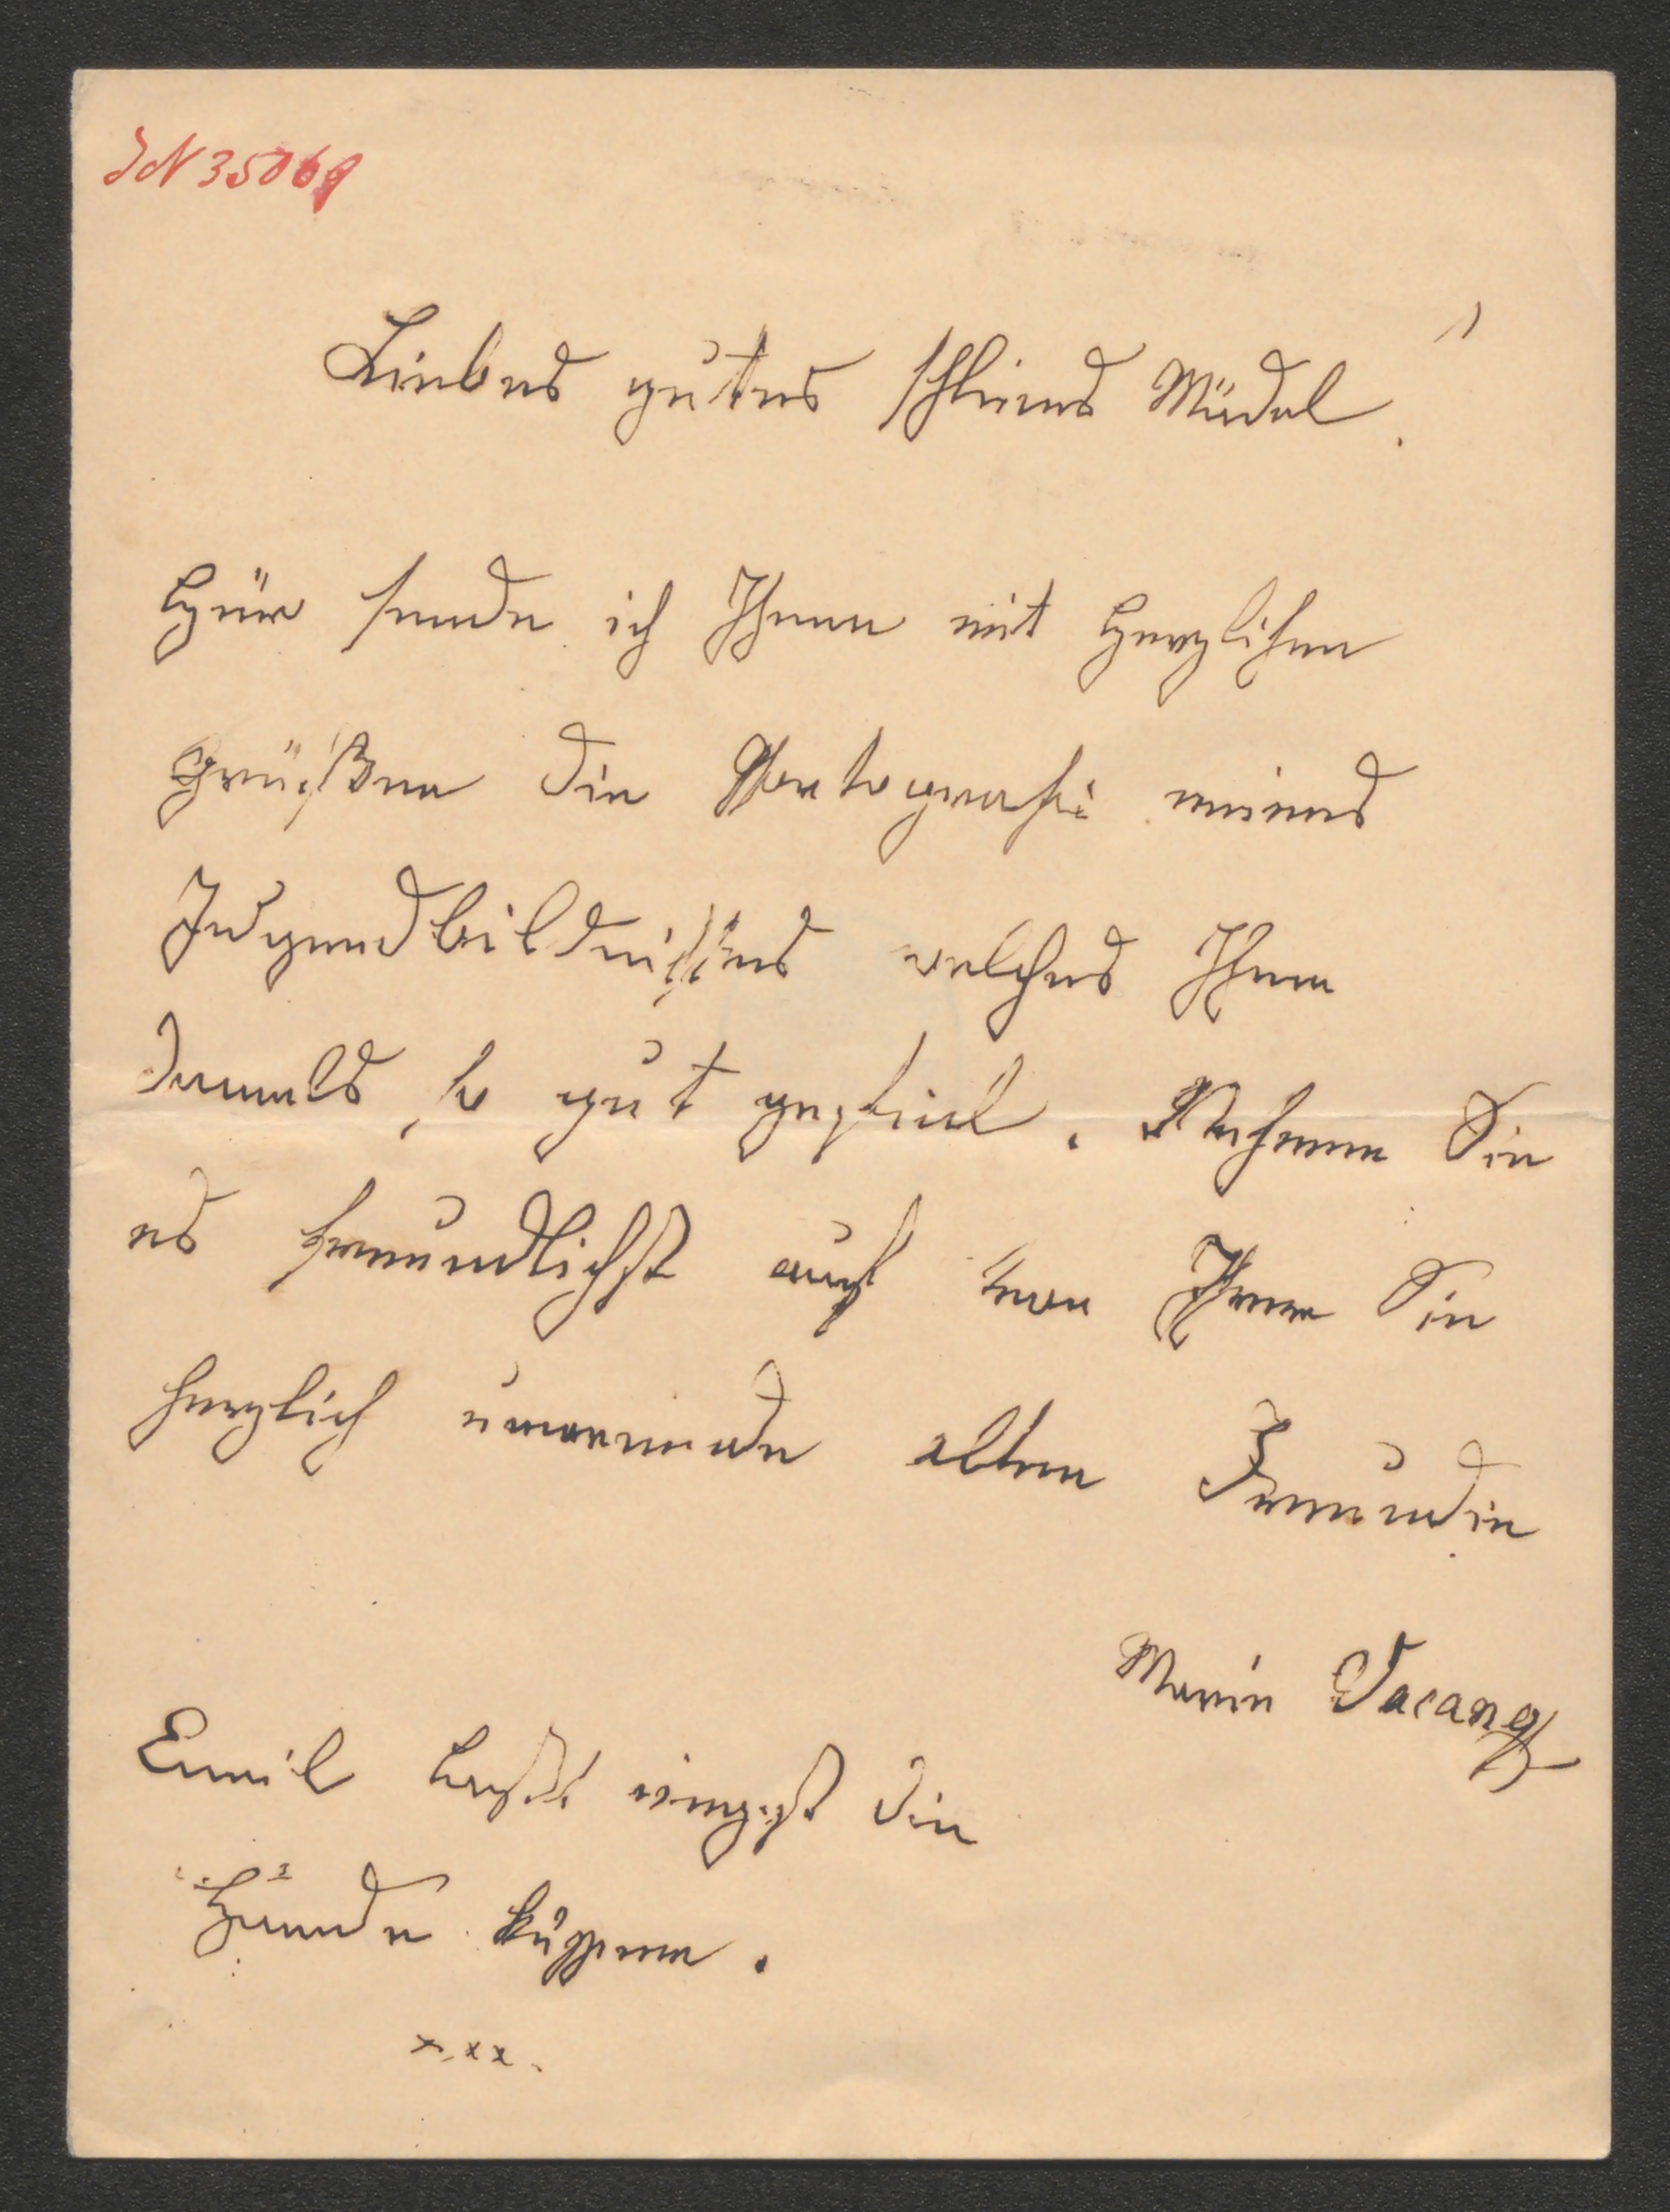 JN 35069
Liebes gutes schlimes Mädel.
Hier sende ich Ihnen mit Herzlichen
Grüßen die Vortografi meines
Jugendbildnißes welches Ihnen
damals so gut gefiel. Nehmen Sie
es freundlichst auf von Ihrer Sie
herzlich umarmende alten Freundin
Marie Vacano
Emil laßt die
Hände küssen.
x.xx.